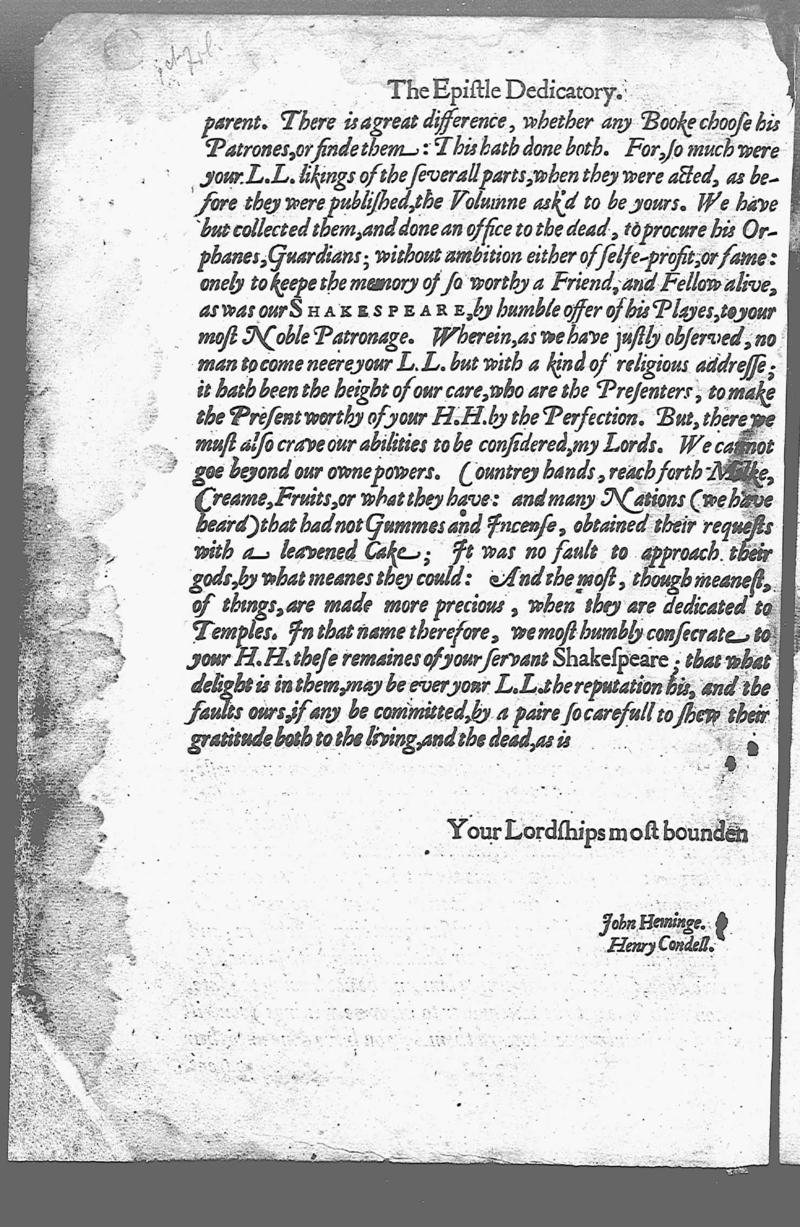 The Epiſtle Dedicatory.
parent. There is a great difference, whether any Booke chooſe his
Patrones, or finde them: This hath done both. For, ſo much were
your L.L. likings of the ſeverall parts, when they were acted, as be-
fore they were publiſhed, the Volumne ask'd to be yours. We have
but collected them, and done an office to the dead, to procure his Or-
phanes, Guardians; without ambition either of ſelfe-profit, or fame:
onely to keepe the memory of ſo worthy a Friend, and Fellow alive,
as was our SHAKESPEARE, by humble offer of his Playes, to your
moſt Noble Patronage. Wherein, as we have juſtly obſerved, no
man to come neere your L.L. but with a kind of religious addreſſe;
it hath been the height of our care, who are the Preſenters, to make
the Preſent worthy of your H.H. by the Perfection. But, there we
muſt alſo crave our abilities to be conſidered, my Lords. We cannot
goe beyond our owne powers. Countrey hands, reach forth Milke,
Creame, Fruits, or what they have: and many Nations (we have
heard) that had not Gummes and Incenſe, obtained their requeſts
with a leavened Cake; It was no fault to approach their
gods, by what meanes they could: And the moſt, though meaneſt,
of things, are made more precious, when they are dedicated to
Temples. In that name therefore, we moſt humbly conſecrate to
your H.H. theſe remaines of your ſervant Shakeſpeare; that what
delight is in them, may be ever your L.L. the reputation his, and the
faults ours, if any be committed, by a paire ſo carefull to ſhew their
gratitude both to the living, and the dead, as is
Your Lordſhips moſt bounden
John Heminge.
Henry Condell.